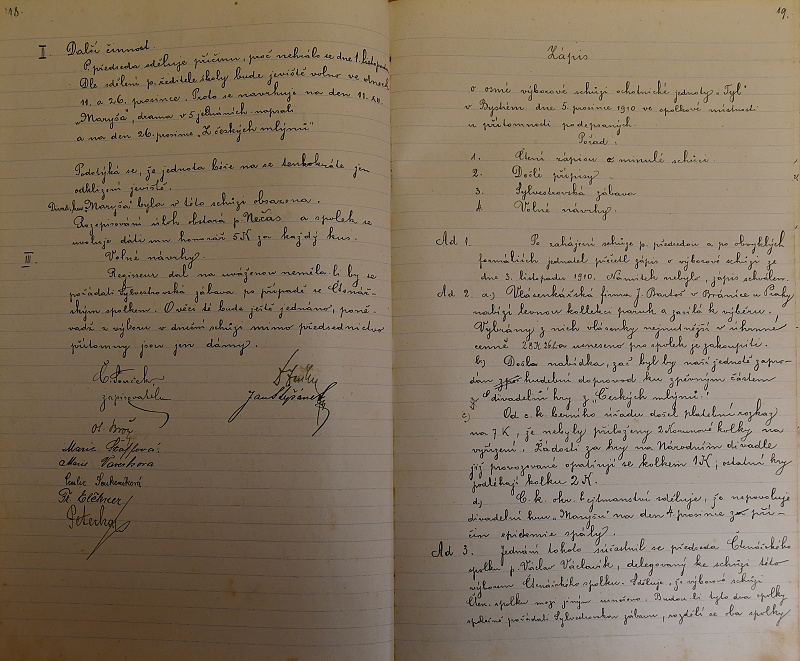 18.
I Další činnost.
P. předseda sděluje příčinu, proč nehrálo se dne 1. listopadu
Dle sdělení p. ředitele školy bude jeviště volno ve dnech
11. a 26. prosince. Proto se navrhuje na den 11. XII.
"Maryša", drama v 5 jednáních napsali
a na den 26. prosince "Z českých mlýnů"
Podotýká se, že jednota béře na se tentokráte jen
odklizení jeviště.
"Maryša" byla v této schůzi obsazena.
Rozepisování úloh obstará p. Nečas a spolek se
uvoluje dáti mu honorář 5 K za každý kus.
III. Volné návrhy.
Regisseur dal na uváženou neměla-li by se
pořádati Sylvestrovská zábava po případě se Čtenář-
ským spolkem. O věci té bude ještě jednáno, poně-
vadž z výboru v dnešní schůzi mimo předsednictvo
přítomny jsou jen dámy.
C. Souček
zapisovatel
Ol. Brož
Marie
Marie
Peterka
19.
Zápis
o osmé výborové schůzi ochotnické jednoty "Tyl"
v Bystrém dne 5. prosince 1910 ve spolkové místnosti
u přítomnosti podepsaných.
Pořad:
1. Čtení zápisu o minulé schůzi
2. Došlé přípisy
3. Sylvestrovská zábava
4. Volné návrhy.
Ad 1. Po zahájení schůze p. předsedou a po obvyklých
formáliích jednatel přečetl zápis o výborové schůzi ze
dne 3. listopadu 1910. Námitek nebylo, zápis schválen.
Ad 2. a.) Vlásenkářská firma J. Bartoš v Bráníce u Prahy
nabízí levnou kollekci paruk a zasílá k výběru.
Vybrány z nich vlásenky nejnutnější v úhrnné
ceně 28 K 26 h a usneseno pro spolek je zakoupiti.
b) Došla nabídka, zač byl by naší jednotě zapro-
dán hudební doprovod ku zpěvným částem
divadelní hry "Z Českých mlýnů".
c) Od c. k. berního úřadu došel platební rozkaz
na 7 K, že nebyly přiloženy 2 Korunové kolky na
vyřízení. Žádosti za hry na Národním divadle
již provozované opatřují se kolkem 1 K, ostatní hry
podléhají kolku 2 K.
d) C. k. okr. hejtmanství sděluje, že nepovoluje
divadelní hru "Maryšu" na den 4. prosince z pří-
čin epidemie spály.
Ad 3. Jednání tohoto súčastnil se předseda Čtenářského
spolku p. Václav Václavík, delegovaný ke schůzi této
výborem Čtenářského spolku. Sděluje, že výborové schůzi
Čten. spolku mezi jiným usneseno: Budou-li tyto dva spolky
společně pořádati Sylvestrovskou zábavu, rozdělí se oba spolky